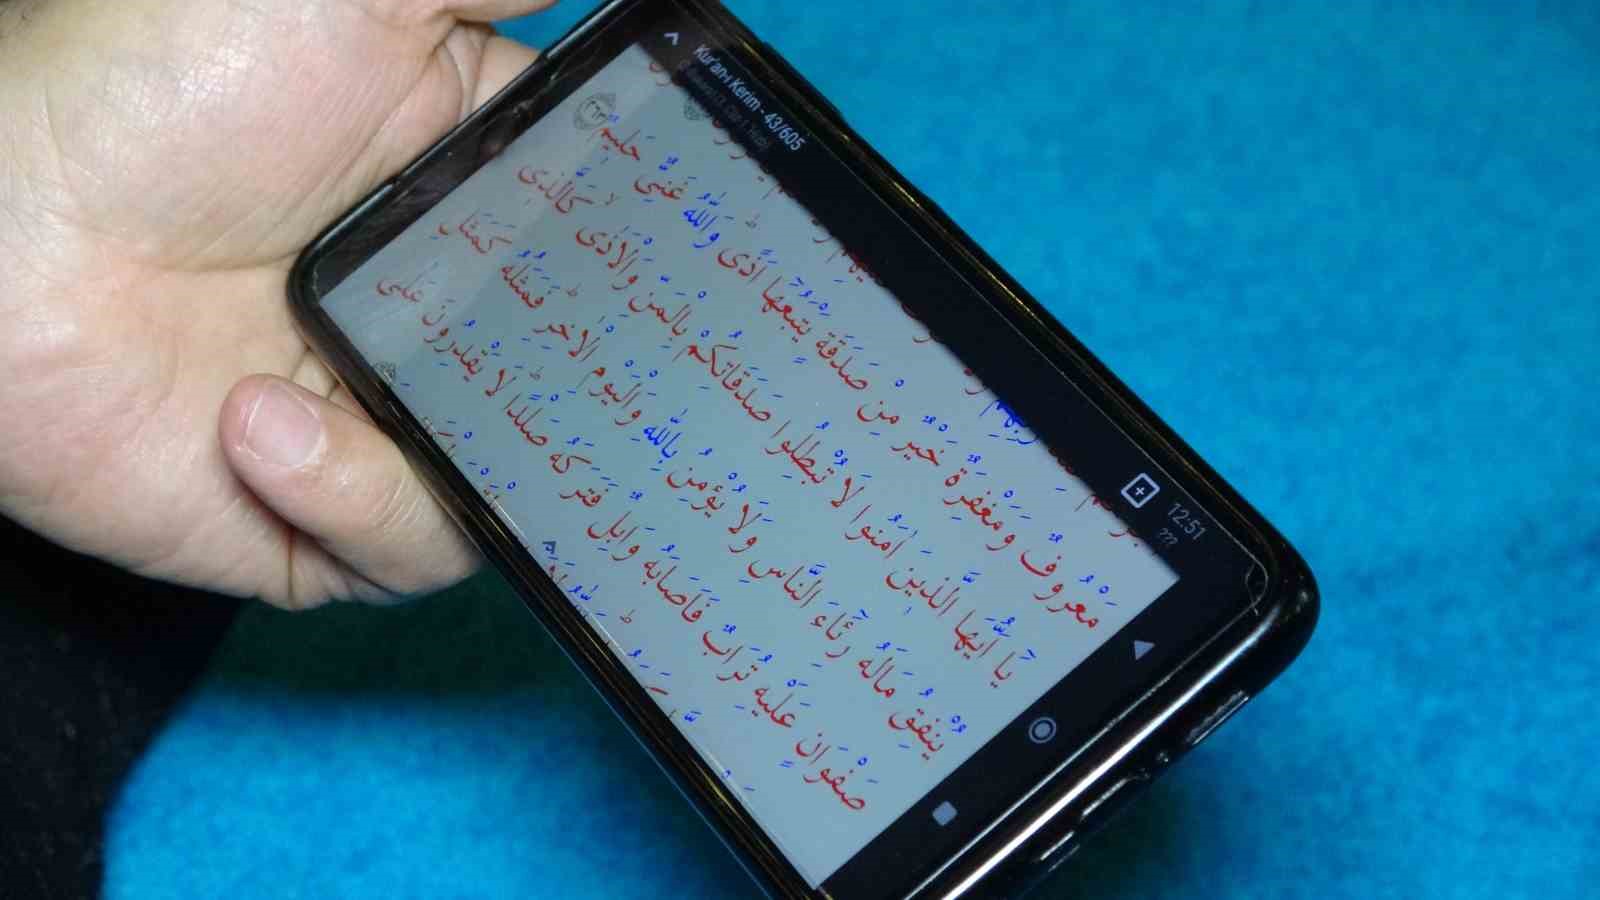 Kur'an-ı Kerim - 43/605
12:51
مَعْرُوفٌ وَمَغْفِرَةٌ خَيْرٌ مِنْ صَدَقَةٍ يَتْبَعُهَٓا اَذًىۜ وَاللّٰهُ غَنِيٌّ حَل۪يمٌ ﴿٢٦٣﴾
يَٓا اَيُّهَا الَّذ۪ينَ اٰمَنُوا لَا تُبْطِلُوا صَدَقَاتِكُمْ بِالْمَنِّ وَالْاَذٰىۙ كَالَّذ۪ي
يُنْفِقُ مَالَهُ رِئَٓاءَ النَّاسِ وَلَا يُؤْمِنُ بِاللّٰهِ وَالْيَوْمِ الْاٰخِرِۜ فَمَثَلُهُ كَمَثَلِ
صَفْوَانٍ عَلَيْهِ تُرَابٌ فَاَصَابَهُ وَابِلٌ فَتَرَكَهُ صَلْدًاۜ لَا يَقْدِرُونَ عَلٰى